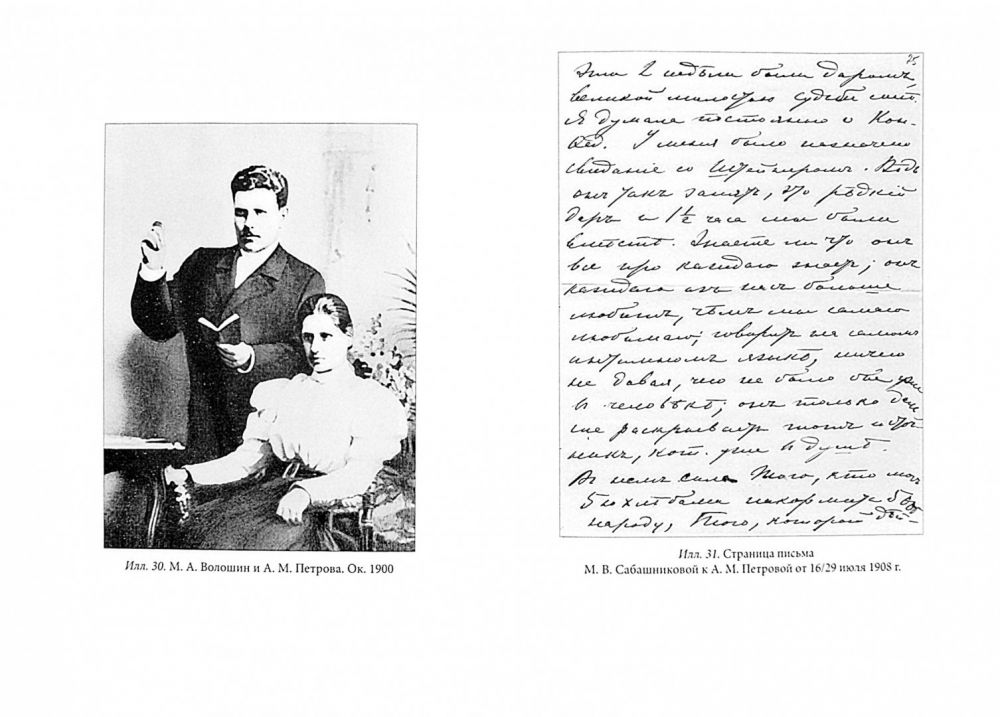 Илл. 30. М. А. Волошин и А. М. Петрова. Ок. 1900
75.
Эти 2 недѣли были даромъ,
великой милостью судьбы
Я думала постоянно о
У меня было назначено
свиданіе со Штейнеромъ. Вѣдь
онъ такъ занятъ, что рѣдкій
даръ и 1½ часа мы были
вместѣ. Знаете ли что онъ
все про каждаго знаетъ; онъ
каждаго изъ насъ больше
любитъ, чѣмъ мы самаго
любимаго; говоритъ на самомъ
интимномъ языкѣ, ничего
не давая, чего не было бы уже
въ человѣкѣ; онъ только
раскрываетъ тотъ
никъ, кот. уже въ душѣ.
Въ немъ сила Того, кто могъ
5ю хлѣбами накормить
народу, Того, который дѣй-
Илл. 31. Страница письма
М. В. Сабашниковой к А. М. Петровой от 16/29 июля 1908 г.